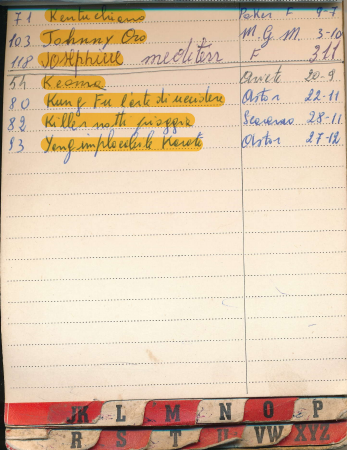 71 Kentuchiano Poker F 9-7
103 Johnny Oro M.G.M. 3-10
118 Josephine mediterr F 311
54 Keoma 20-9
80 Kung Fu l'arte di uccidere Astor 22-11
82 Killer notti pioggia 28-11
93 Yang implacabile Karate Astor 27-12
JK L M N O P
R S T U VW XYZ